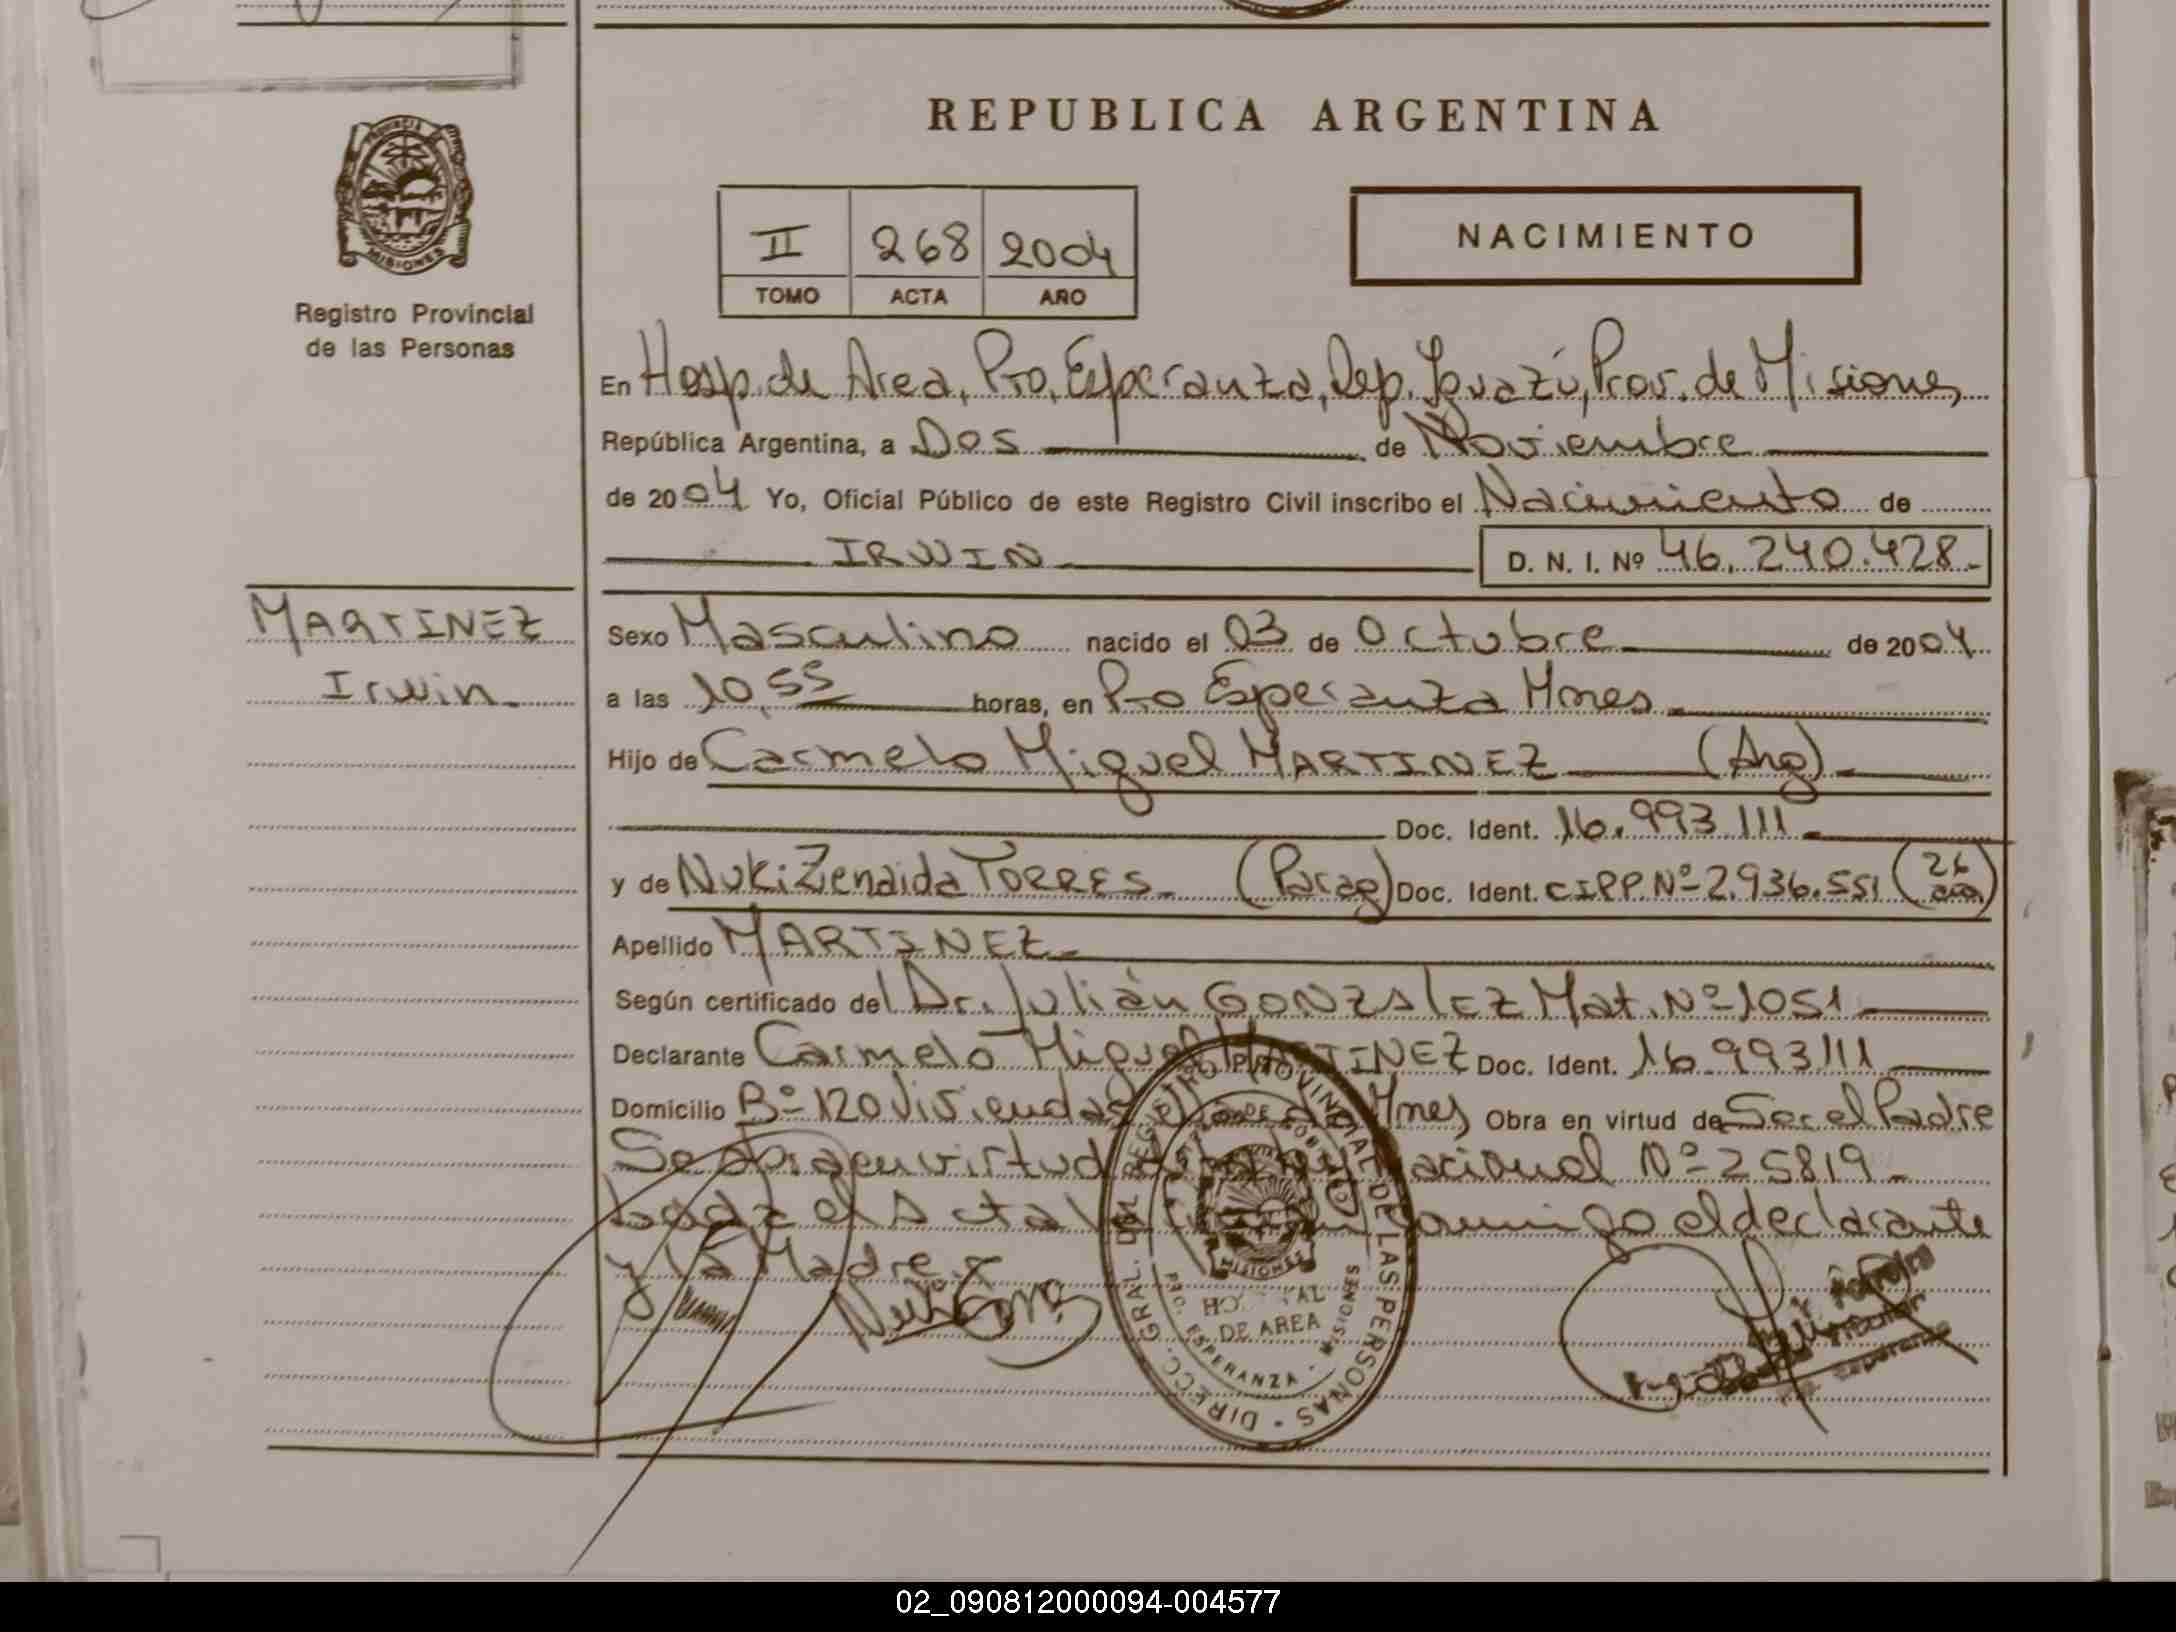 REPUBLICA ARGENTINA
PROVINCIA DE MISIONES
Registro Provincial
de las Personas
II 268 2004
TOMO ACTA AÑO
NACIMIENTO
En Hosp. de Area, Pto. Esperanza, Dep. Iguazú, Prov. de Misiones,
República Argentina, a Dos de Noviembre
de 2004 Yo, Oficial Público de este Registro Civil inscribo el Nacimiento de
IRWIN D. N. I. Nº 46.240.428.-
MARTINEZ
Irwin.
Sexo Masculino nacido el 03 de Octubre de 2004
a las 10,55 horas, en Pto Esperanza Mnes.
Hijo de Carmelo Miguel MARTINEZ (Arg)
Doc. Ident. 16.993.111.
y de Nuki Zenaida TORRES. (Parag) Doc. Ident. CIPP. Nº 2.936.551 (26
Apellido MARTINEZ.
Según certificado del Dr. Julián GONZALEZ Mat. Nº 1051
Declarante Carmelo Miguel MARTINEZ Doc. Ident. 16.993111
Domicilio Bº 120 Viviendas Mnes, Obra en virtud de Ser el Padre
virtud Nacional Nº 25819.-
el Acta conmigo el declarante
y la Madre.
DIRECC. GRAL. DEL REGISTRO PROVINCIAL DE LAS PERSONAS
MISIONES
DE AREA
PTO. ESPERANZA - MISIONES
02_090812000094-004577